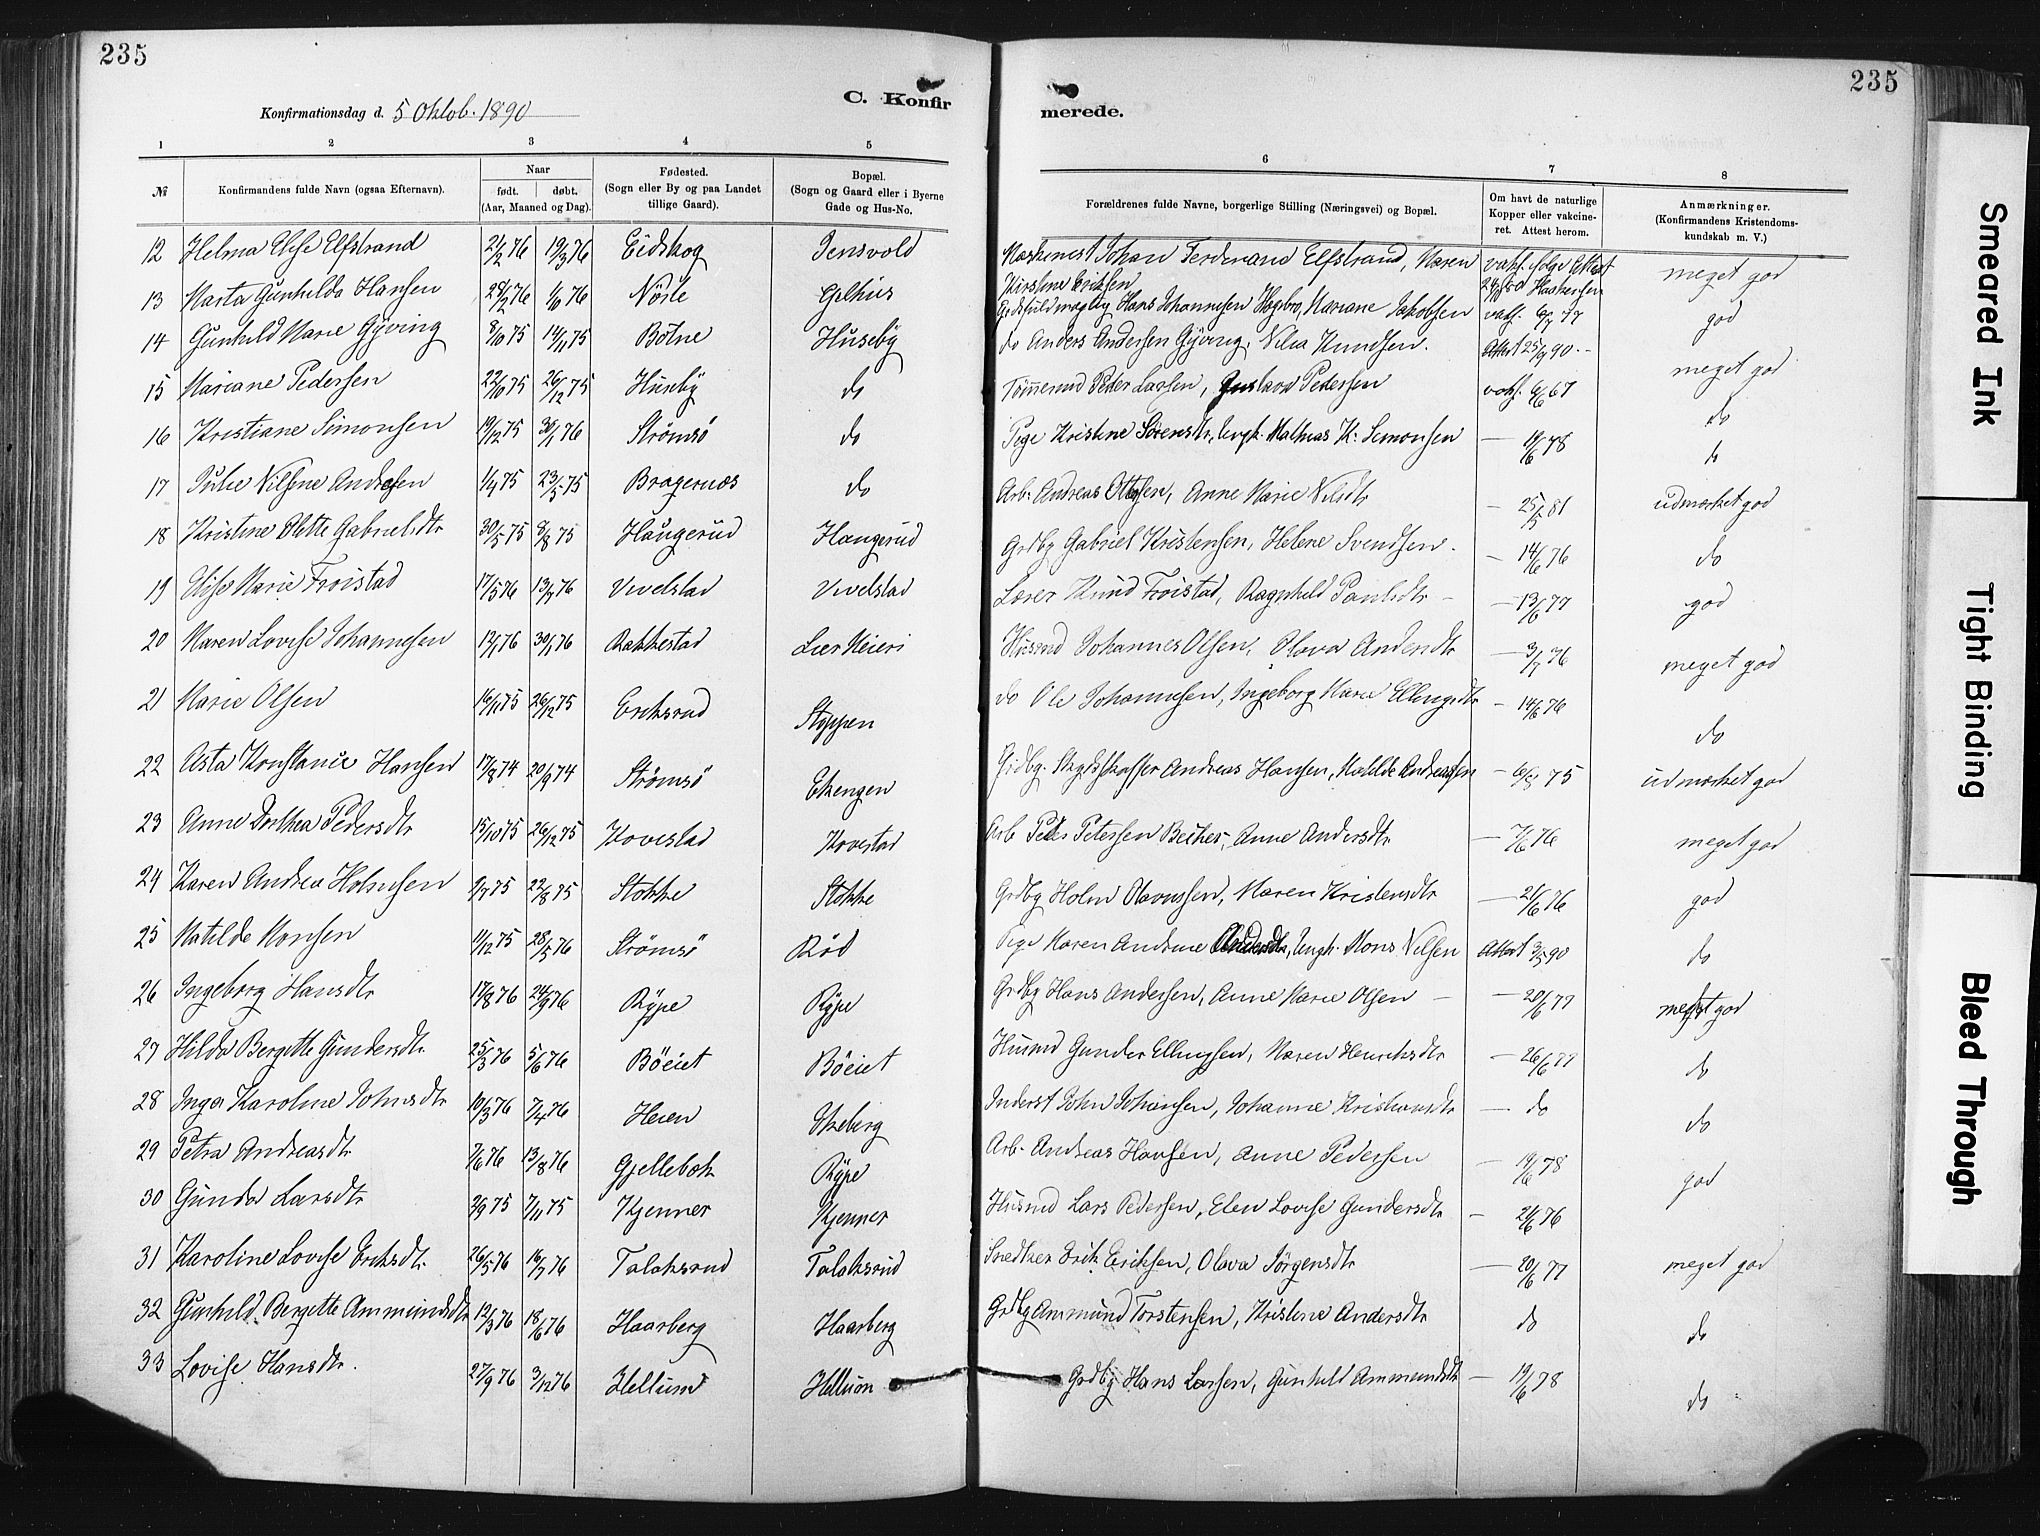 235
235
Konfirmationsdag d. 5 Oktob. 1890
C. Konfir
merede.
1 2 3 4 5 6 7 8
№
Konfirmandens fulde Navn (ogsaa Efternavn).
Naar
født. døbt.
(Aar, Maaned og Dag).
Fødested.
(Sogn eller By og paa Landet
tillige Gaard).
Bopæl.
(Sogn og Gaard eller i Byerne
Gade og Hus-No.
Forældrenes fulde Navne, borgerlige Stilling (Næringsvei) og Bopæl.
Om havt de naturlige
Kopper eller vakcine-
ret. Attest herom.
Anmærkninger.
(Konfirmandens Kristendoms-
kundskab m. V.)
12 Helma Elise Elfstrand 21/2 76 19/3 76 Eidskog Jensvold Johan Ferdinand Elfstrand, Maren
Kirstine Eriksen meget god
13 Marta Gunhilda Hansen 28/2 76 76 Gjelhus Hans Johannesen Hogbro, Mariane Jakobsen god
14 Gunhild Marie Gÿving 8/10 75 14/11 75 Botne Husebÿ do Anders Andersen Gÿving, Kundsen. Attest 25/9 90 meget god
15 Mariane Pedersen 22/10 75 26/12 75 Husebÿ do Tömmermd Peder Larsen, Gustava Pedersen do
16 Kristiane Simonsen 19/12 75 30/1 76 Strömsö do Pige Kristine Sörensdtr, Ungk. Mathias K. Simonsen do
17 Julie Nilsine Andresen 1/4 75 23/5 75 Bragernæs do Arb. Andreas Ottesen, Anne Marie Nilsdtr - 25/5 81 udmærket god
18 Kristine Olette Gabrielsdtr 30/5 75 8/8 75 Haugerud Haugerud Grdbg Gabriel Kristensen, Helene Svendsen. - 14/6 76 do
19 Elise Marie Froistad 17/5 76 13/7 76 Vevelstad Vevelstad Lærer Knud Froistad, Ragnhild Paulsdtr - - 13/6 77 god
20 Maren Lovise Johannesen 12/1 76 30/1 76 Rakkestad Lier Meieri Husmd Johannes Olsen, Olava Andersdtr - 3/7 76 meget god
21 Marie Olsen 16/11 75 26/12 75 Eriksrud Stoppen do Ole Johannesen, Ingeborg Marie Ellingsdtr - 14/6 76 do
22 Asta Konstance Hansen 17/8 74 20/9 74 Strömsö Ekengen Grdbg. Skydsskaffer Andreas Hansen, Matilde Andreassen - 75 udmærket god
23 Anne Dorthea Pedersdtr 15/10 75 26/12 75 Kovestad Kovestad Arb Peder Petersen Becher, Anne Andersdtr - 7/6 76 meget god
24 Karen Andrea Holmsen 9/7 75 22/8 75 Stokke Stokke Grdbg Holm Olavussen, Maren Kristensdtr - 21/6 76 god
25 Matilde Monsen 11/12 75 28/5 76 Strömsö Röd Pige Karen Andrine Andersdtr, Ungk. Mons Nilsen Attest 3/5 90 do
26 Ingeborg Hansdtr 17/8 76 24/9 76 Rÿpe Rÿpe Grdbg Hans Andersen, Anne Marie Olsen - - 20/6 77 meget god
27 Hilda Bergette Gundersdtr. 25/3 76 5/6 76 Böeiet Böeiet Husmd Gunder Ellingsen, Maren Henriksdtr - 26/6 77 do
28 Inga Karoline Johnsdtr 10/3 76 7/4 76 Heien Ekeberg Inderst John Johansen, Johanne Kristiansdtr - do do
29 Petra Andreasdtr 7/6 76 13/8 76 Gjellebæk Rÿpe Arb. Andreas Hansen, Anne Pedersen - 19/6 78 god
30 Gunda Larsdtr 2/9 75 7/11 75 Kjenner Kjenner Husmd Lars Pedersen, Elen Lovise Gundersdtr - 21/6 76
31 Karoline Lovise Eriksdtr. 26/5 76 16/7 76 Talaksrud Talaksrud Snedker Erik Eriksen, Olava Jörgensdtr - 20/6 77 meget god
32 Gunhild Bergette Ammundsdtr 12/3 76 18/6 76 Haarberg Haarberg Grdbg Ammund Torstensen, Kristine Andersdtr do do
33 Lovise Hansdtr. 27/9 76 3/12 76 Hellum Hellum Grdbg Hans Larsen, Gunhild Ammundsdtr - 19/6 78 do
Smeared Ink
Tight Binding
Bleed Through